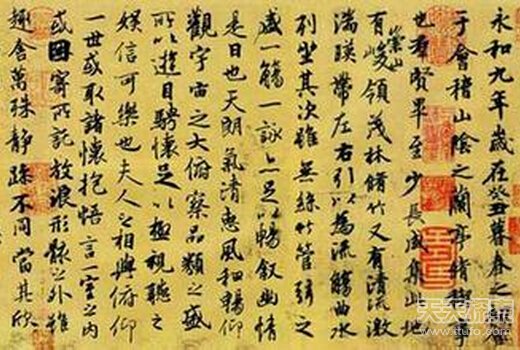 永和九年歲在癸丑暮春之初會
于會稽山陰之蘭亭脩禊事
也羣賢畢至少長咸集此地
有崇山峻領茂林脩竹又有清流激
湍暎帶左右引以為流觴曲水
列坐其次雖無絲竹管弦之
盛一觴一詠亦足以暢敘幽情
是日也天朗氣清惠風和暢仰
觀宇宙之大俯察品類之盛
所以遊目騁懷足以極視聽之
娛信可樂也夫人之相與俯仰
一世或取諸懷抱悟言一室之內
或因寄所託放浪形骸之外雖
趣舍萬殊靜躁不同當其欣